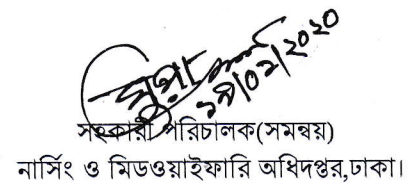 সহকারী পরিচালক(সমন্বয়)
নার্সিং ও মিডওয়াইফারি অধিদপ্তর,ঢাকা।